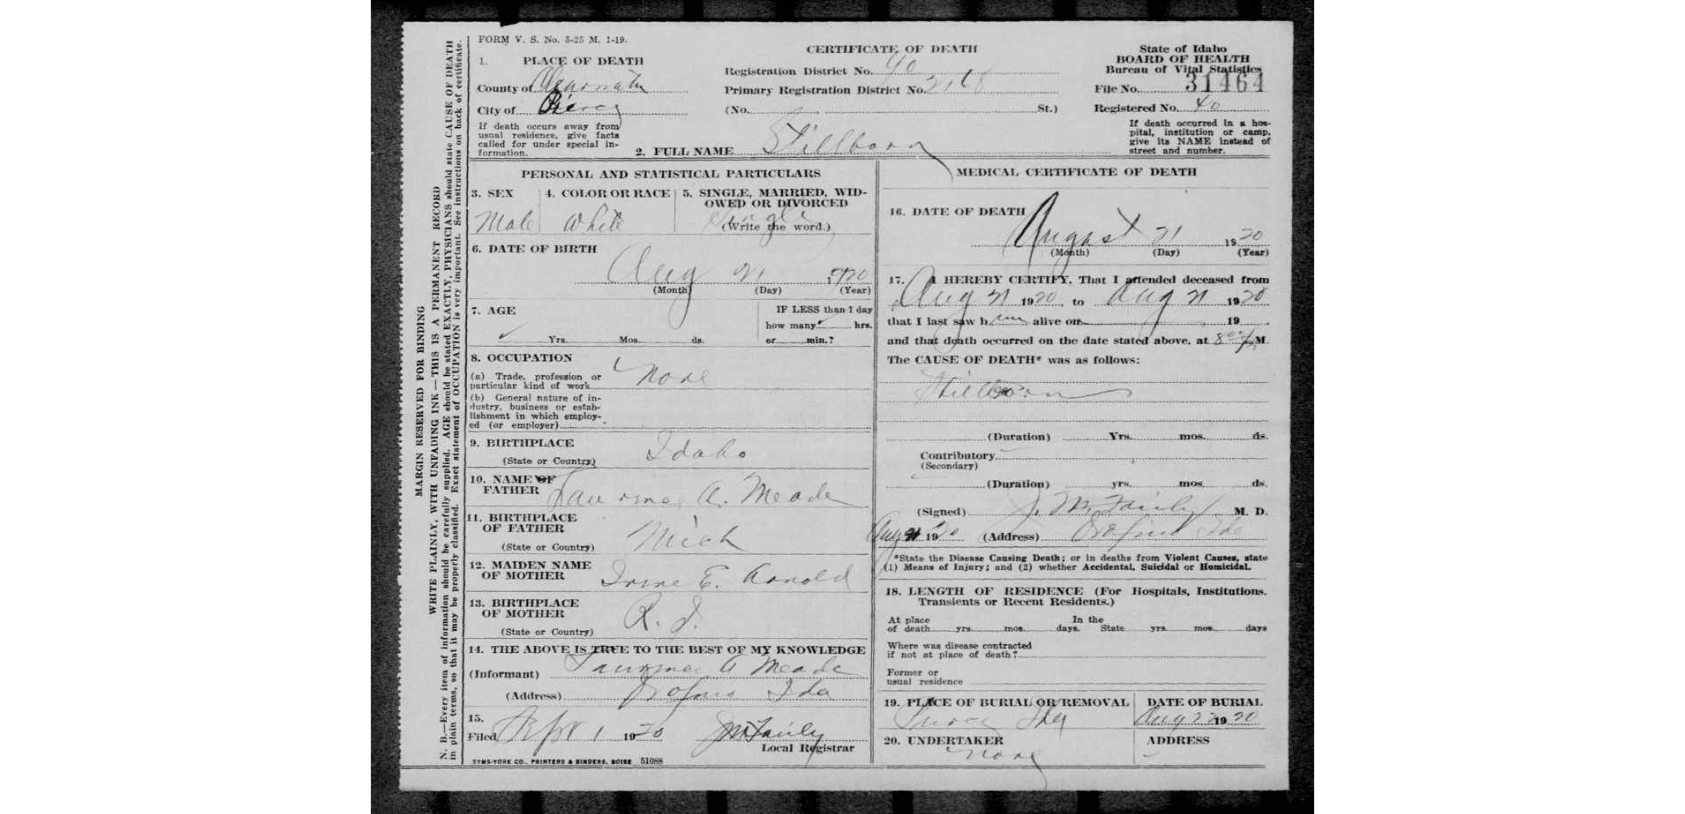 FORM V. S. No. 5-25 M. 1-19.
CERTIFICATE OF DEATH
State of Idaho
BOARD OF HEALTH
Bureau of Vital Statistics
1. PLACE OF DEATH
County of Clearwater
City of Pierce
Registration District No. 40
Primary Registration District No.
(No. St.)
File No. 31464
Registered No. 40
If death occurs away from
usual residence, give facts
called for under special in-
formation.
If death occurred in a hos-
pital, institution or camp,
give its NAME instead of
street and number.
2. FULL NAME Stillborn
MARGIN RESERVED FOR BINDING
WRITE PLAINLY, WITH UNFADING INK—THIS IS A PERMANENT RECORD
N. B.—Every item of information should be carefully supplied. AGE should be stated EXACTLY, PHYSICIANS should state CAUSE OF DEATH
in plain terms, so that it may be properly classified. Exact statement of OCCUPATION is very important. See instructions on back of certificate.
PERSONAL AND STATISTICAL PARTICULARS
3. SEX
Male
4. COLOR OR RACE
White
5. SINGLE, MARRIED, WID-
OWED OR DIVORCED
Single
(Write the word.)
6. DATE OF BIRTH
Aug 21 1920
(Month) (Day) (Year)
7. AGE
Yrs. Mos. ds.
IF LESS than 1 day
how many hrs.
or min.?
8. OCCUPATION
(a) Trade, profession or
particular kind of work None
(b) General nature of in-
dustry, business or estab-
lishment in which employ-
ed (or employer)
9. BIRTHPLACE
(State or Country) Idaho
10. NAME OF
FATHER A. Meade
11. BIRTHPLACE
OF FATHER
(State or Country) Mich
12. MAIDEN NAME
OF MOTHER Irene E. Arnold
13. BIRTHPLACE
OF MOTHER
(State or Country) R. I.
14. THE ABOVE IS TRUE TO THE BEST OF MY KNOWLEDGE
(Informant) A Meade
(Address) Orofino Ida
15.
Filed Sept 1 1920 J M Fairly
Local Registrar
SYMS-YORK CO., PRINTERS & BINDERS, BOISE 51088
MEDICAL CERTIFICATE OF DEATH
16. DATE OF DEATH
August 21 1920
(Month) (Day) (Year)
17. I HEREBY CERTIFY, That I attended deceased from
Aug 21 1920 to Aug 21 1920
that I last saw him alive on 19
and that death occurred on the date stated above, at 8 P M.
The CAUSE OF DEATH* was as follows:
Stillborn
(Duration) Yrs. mos. ds.
Contributory
(Secondary)
(Duration) yrs. mos. ds.
(Signed) J. M. Fairly M. D.
Aug 21 1920 (Address) Orofino Ida
*State the Disease Causing Death; or in deaths from Violent Causes, state
(1) Means of Injury; and (2) whether Accidental, Suicidal or Homicidal.
18. LENGTH OF RESIDENCE (For Hospitals, Institutions,
Transients or Recent Residents.)
At place
of death yrs. mos. days.
In the
State yrs. mos. days
Where was disease contracted
if not at place of death?
Former or
usual residence
19. PLACE OF BURIAL OR REMOVAL
Pierce Ida
DATE OF BURIAL
Aug 22 1920
20. UNDERTAKER
None
ADDRESS